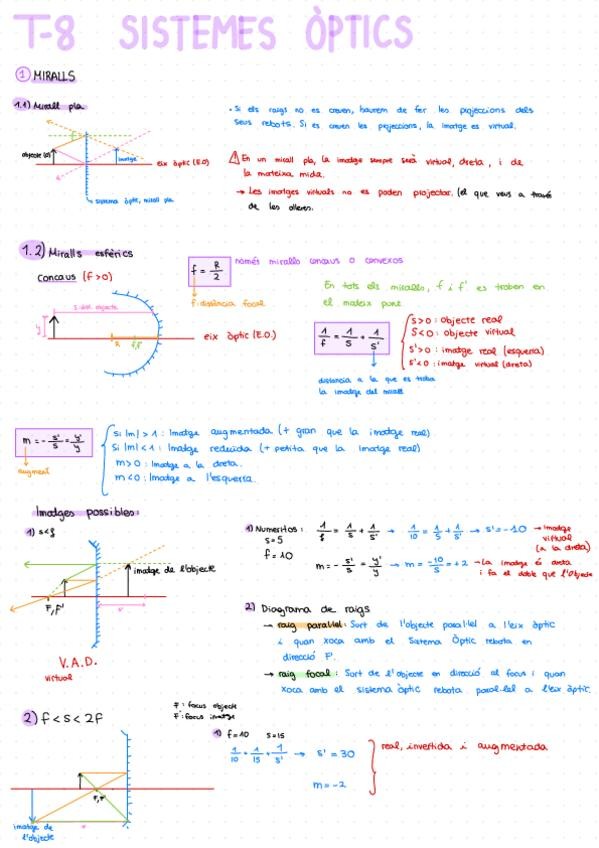 T-8 SISTEMES ÒPTICS
1 MIRALLS
1.1) Mirall pla
objecte (o)
imatge
eix òptic (E.O)
sistema òptic, mirall pla
· Si els raigs no es creuen, haurem de fer les projeccions dels
seus rebots. Si es creuen les projeccions, la imatge es virtual.
⚠ En un mirall pla, la imatge sempre serà virtual, dreta, i de
la mateixa mida.
→ Les imatges virtuals no es poden projectar. (el que veus a través
de les olleres.
1.2) Miralls esfèrics
Concaus (f>0)
f = R/2
només miralls concaus o convexos
f: distància focal
En tots els miralls, f i f' es troben en
el mateix punt.
s: dist. objecte
y
R
f, f'
eix òptic (E.O.)
1/f = 1/s + 1/s'
s>0: objecte real
s<0: objecte virtual
s'>0: imatge real (esquerra)
s'<0: imatge virtual (dreta)
distancia a la que es troba
la imatge del mirall
m = - s'/s = y'/y
augment
Si |m| > 1: Imatge augmentada (+ gran que la imatge real)
Si |m| < 1: Imatge reduïda (+ petita que la imatge real)
m>0: Imatge a la dreta.
m<0: Imatge a l'esquerra.
Imatges possibles:
1) s<f
imatge de l'objecte
F, F'
s'
V.A.D.
virtual
1) Numeritos:
s=5
f=10
1/f = 1/s + 1/s' → 1/10 = 1/5 + 1/s' → s' = -10 → imatge
virtual
(a la dreta)
m = - s'/s = y'/y → m = - -10/5 = +2 → La imatge és dreta
i fa el doble que l'objecte
2) Diagrama de raigs
→ raig paral·lel: Surt de l'objecte paral·lel a l'eix òptic
i quan xoca amb el Sistema Òptic rebota en
direcció F'.
→ raig focal: Surt de l'objecte en direcció al focus i quan
xoca amb el sistema òptic rebota paral·lel a l'eix òptic.
2) F<s<2F
F: focus objecte
F': focus imatge
F, F'
imatge de
l'objecte
1) f=10 s=15
1/10 = 1/15 + 1/s' → s' = 30
m = -2
real, invertida i augmentada